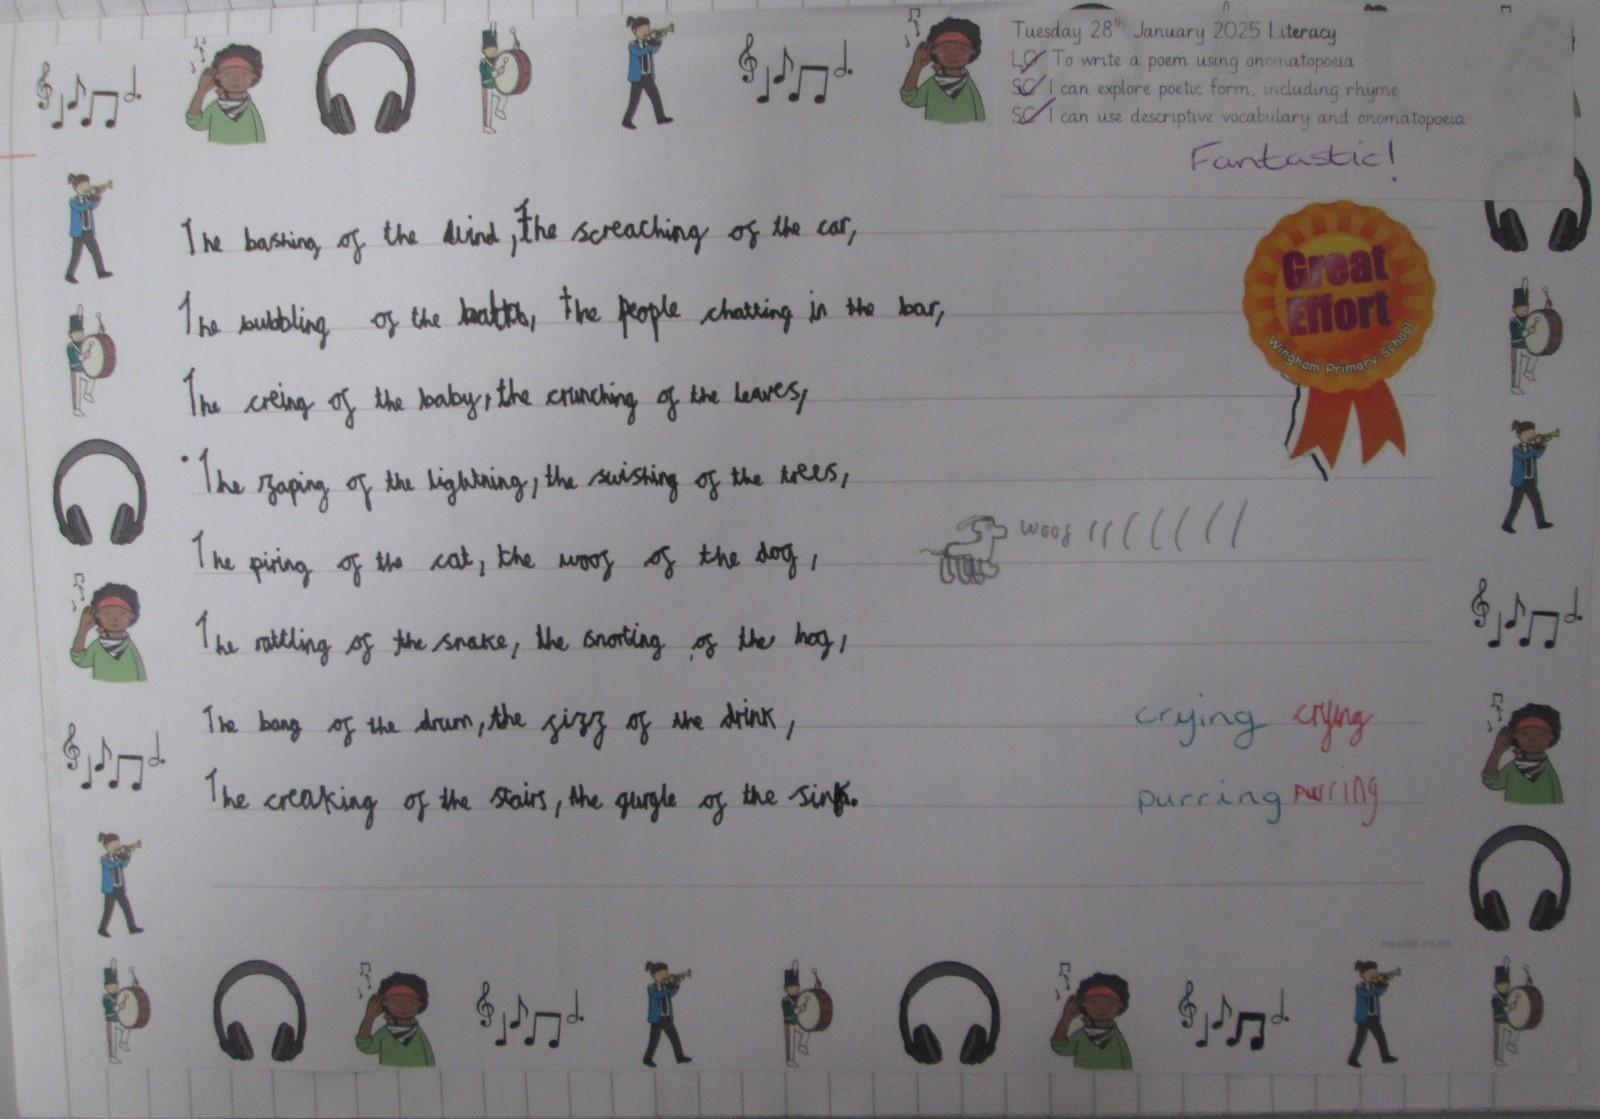 Tuesday 28th January 2025 Literacy
LO To write a poem using onomatopoeia
SC I can explore poetic form, including rhyme
SC I can use descriptive vocabulary and onomatopoeia
Fantastic!
The bashing of the wind, the screaching of the car,
The bubbling of the bath, the people chatting in the bar,
Great
Effort
Wingham Primary School
The creing of the baby, the crunching of the leaves,
The zaping of the lightning, the swishing of the trees,
woof
The piring of the cat, the woof of the dog,
The rattling of the snake, the snorting of the hog,
The bang of the drum, the fizz of the drink,
crying crying
The creaking of the stairs, the gurgle of the sink.
purring purring